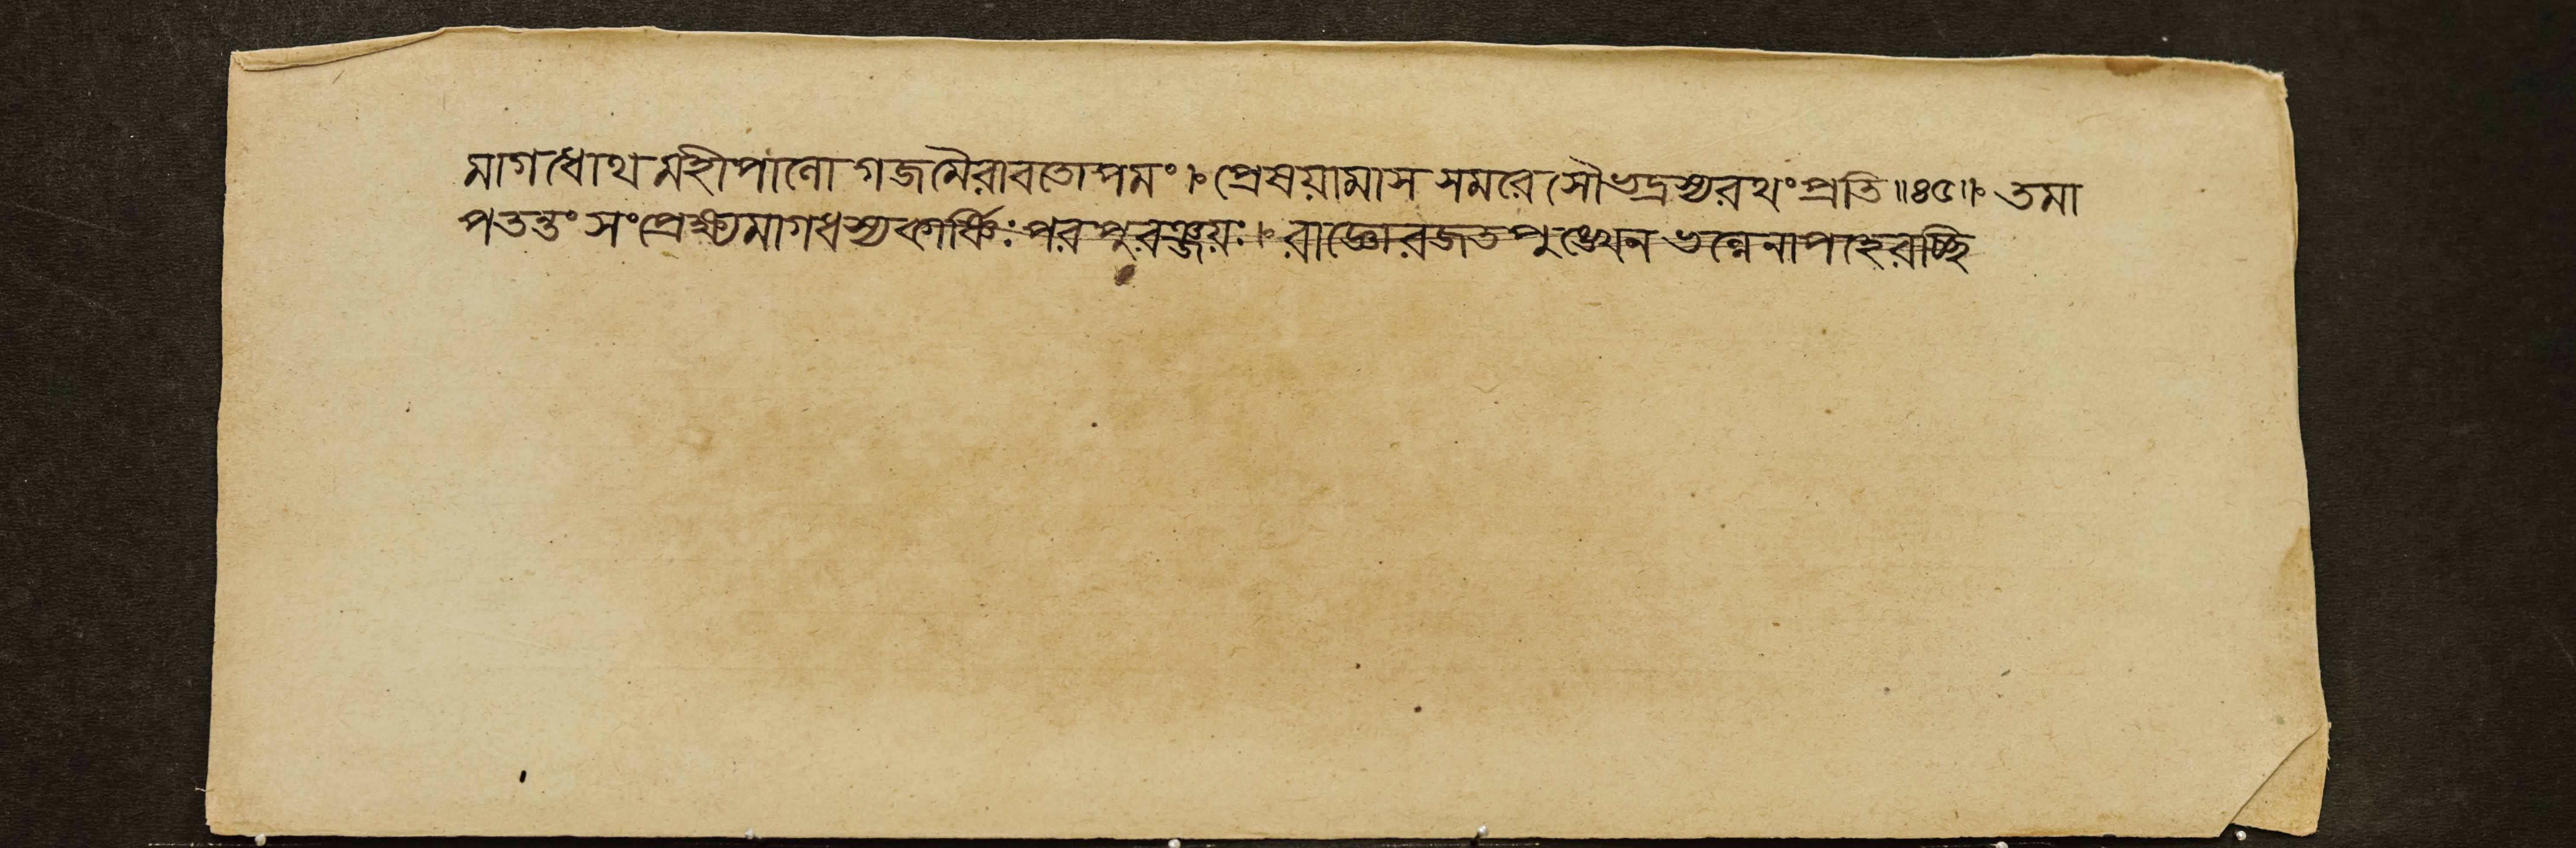 মাগধোথ মহীপালো গজমৈরাবতোপমং । প্রেষয়ামাস সমরে সৌভদ্রস্যরথংপ্রতি ॥৪৫॥ তমা
পতন্তং সংপ্রেক্ষ্যমাগধস্যকার্ষ্ণিঃ পরপুরঞ্জয়ঃ । রাজ্ঞোরজতপুঙ্খেন ভল্লেনাপহরচ্ছি